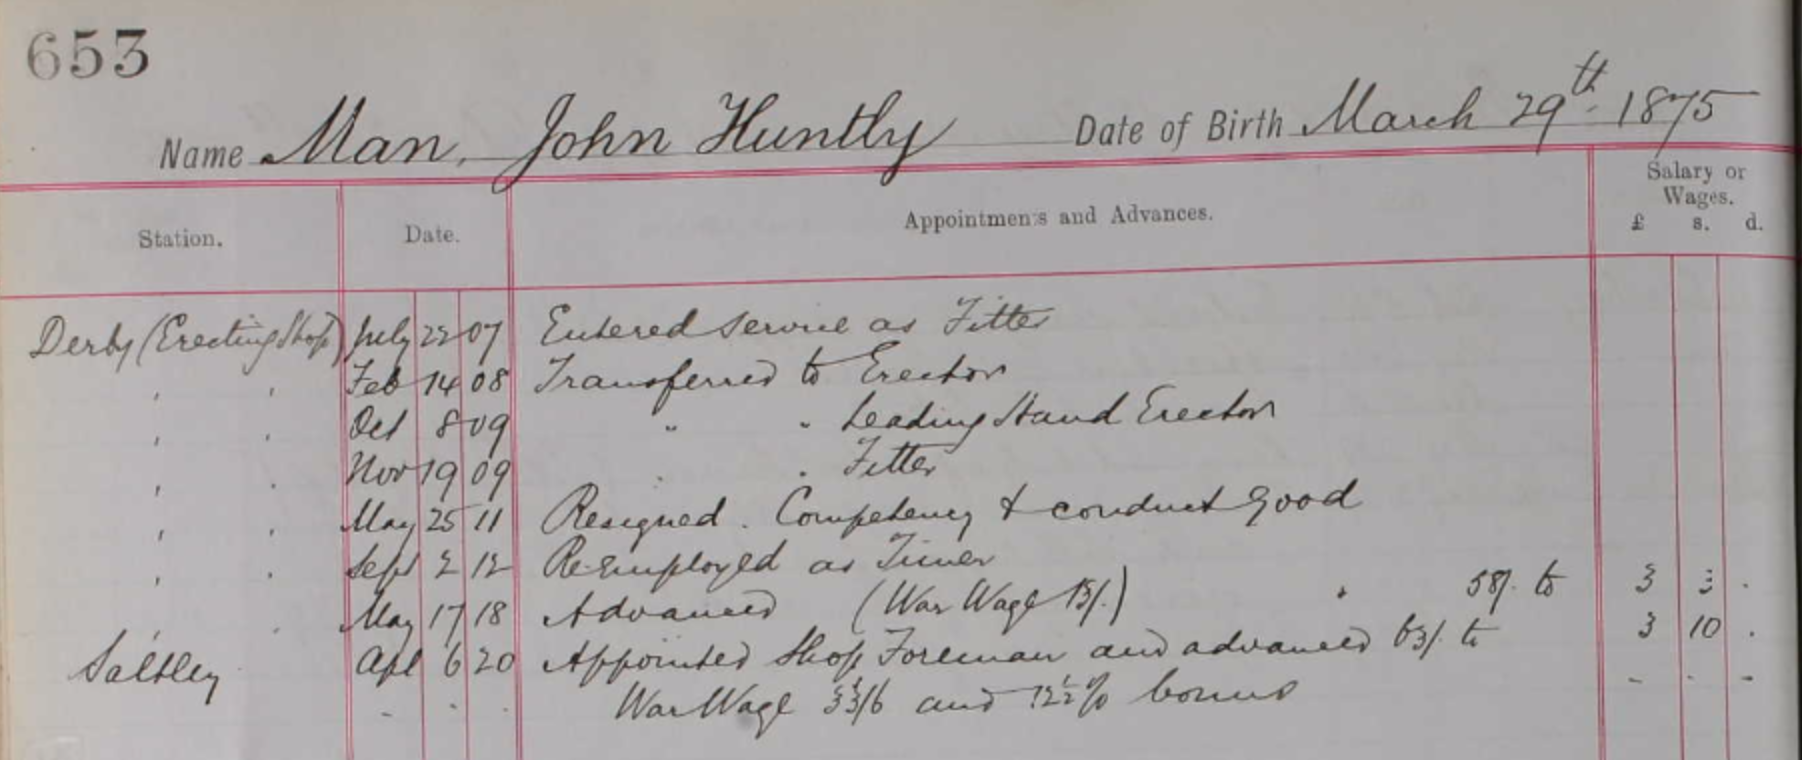 653
Name Man, John Huntly Date of Birth March 29th 1875
Station. Date. Appointments and Advances. Salary or Wages.
£ s. d.
Derby (Erecting Shop) July 22 07 Entered Service as Fitter
" " Feb 14 08 Transferred to Erector
" " Oct 8 09 " " Leading Hand Erector
" " Nov 19 09 " " Fitter
" " May 25 11 Resigned. Competency & conduct good
" " Sept 2 12 Re-employed as Timer
" " May 17 18 Advanced (War Wage 13/.) " 58/. to 3 3 .
Saltley Apl 6 20 Appointed Shop Foreman and advanced 63/. to 3 10 .
- - - War Wage 33/6 and 12½% bonus - - -